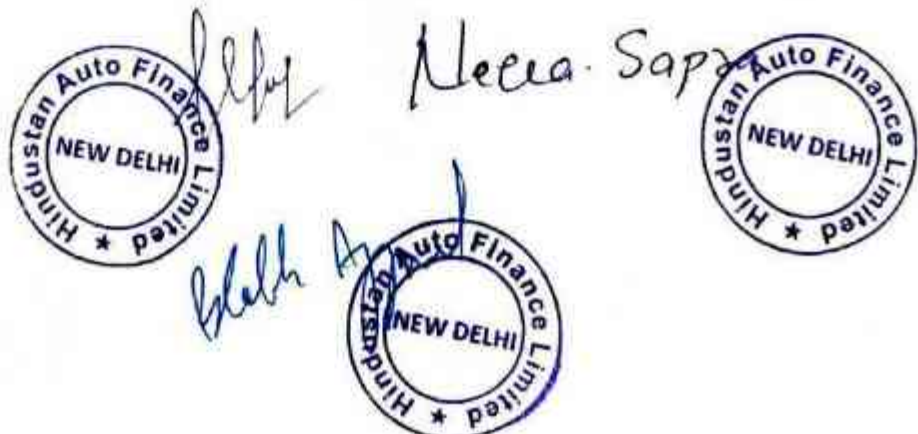 Hindustan Auto Finance Limited ★
NEW DELHI
Neena. Sapra
Hindustan Auto Finance Limited ★
NEW DELHI
Hindustan Auto Finance Limited ★
NEW DELHI